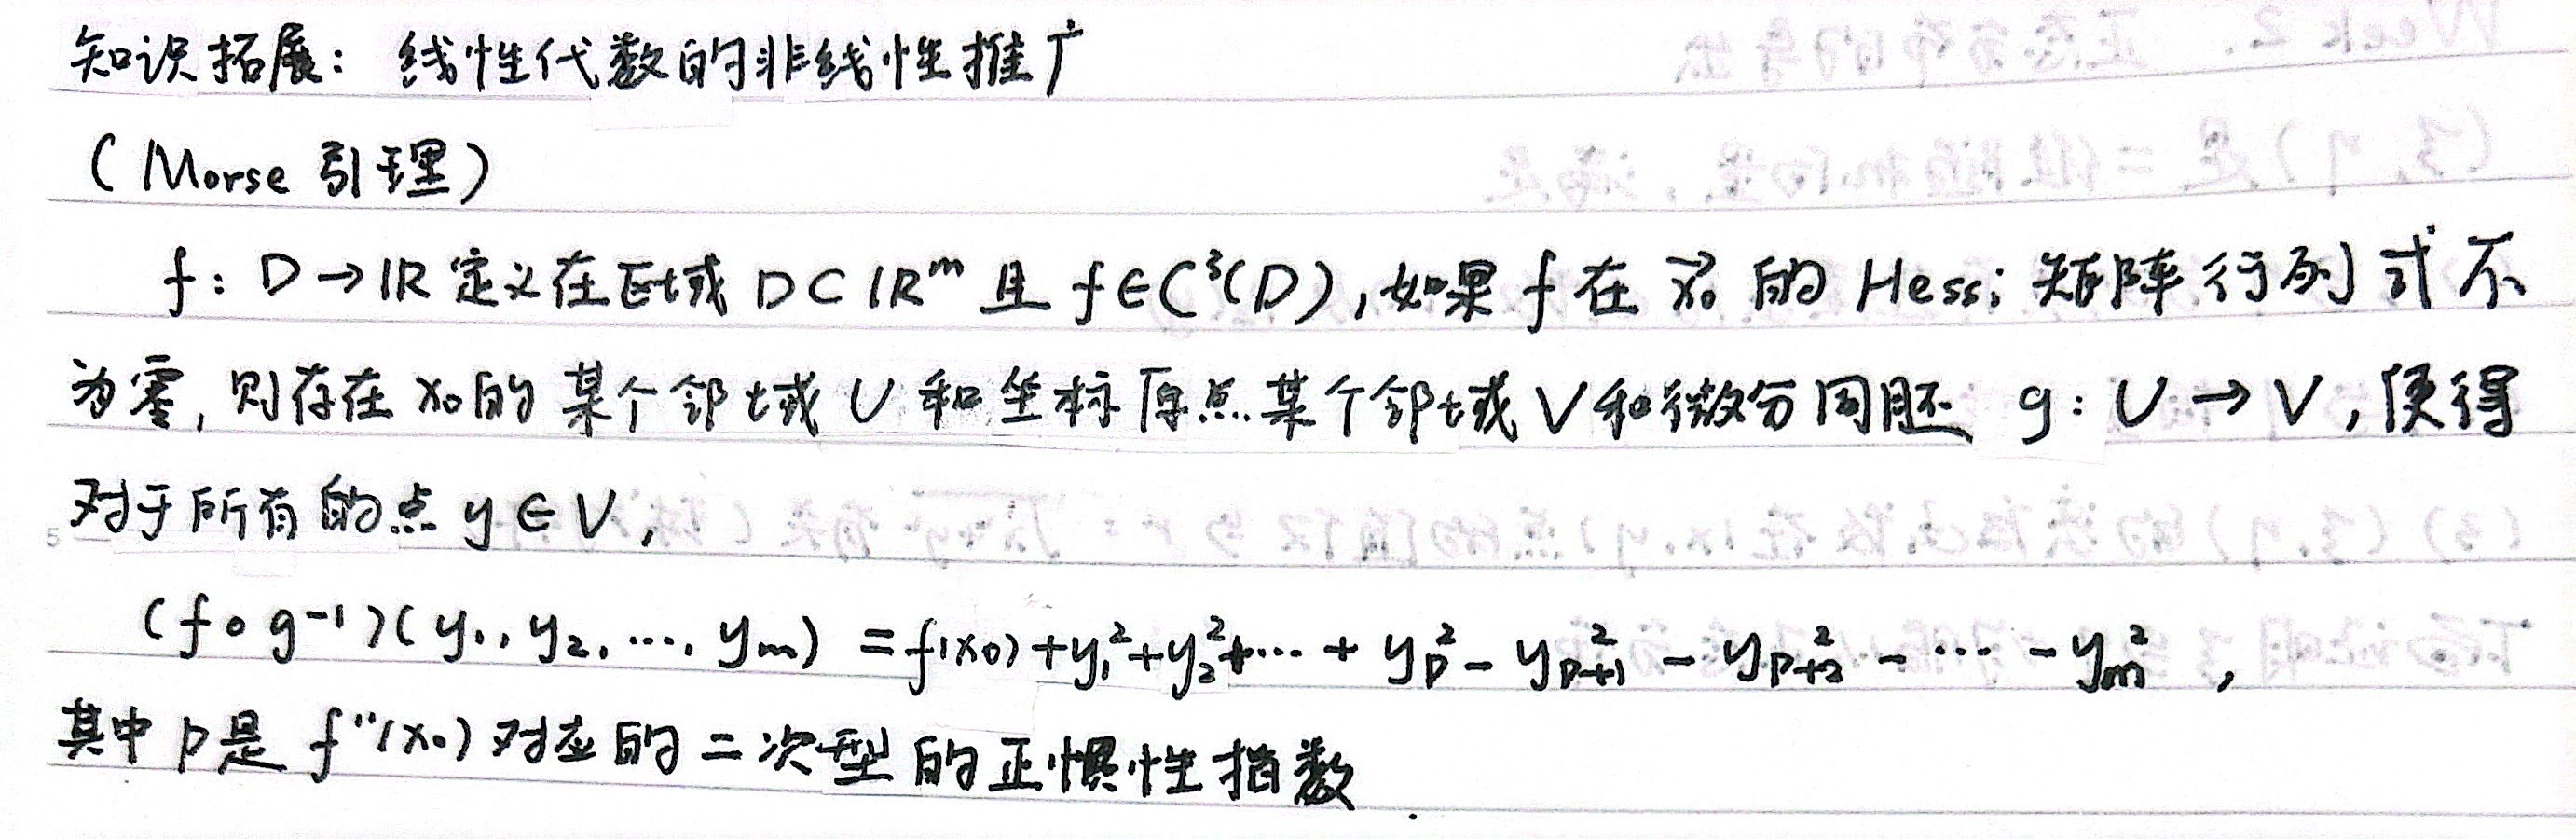 知识拓展：线性代数的非线性推广
（Morse 引理）
f: D→IR 定义在区域 D⊂IRᵐ 且 f∈C³(D),如果 f 在 x⃗₀ 的 Hessi 矩阵行列式不
为零,则存在 x₀的某个邻域 U 和坐标原点某个邻域 V 和微分同胚 g: U→V,使得
对于所有的点 y∈V,
(f∘g⁻¹)(y₁,y₂,…,yₘ) = f(x₀)+y₁²+y₂²+…+y_p²-y_{p+1}²-y_{p+2}²-…-yₘ²,
其中 p是 f''(x₀) 对应的二次型的正惯性指数.